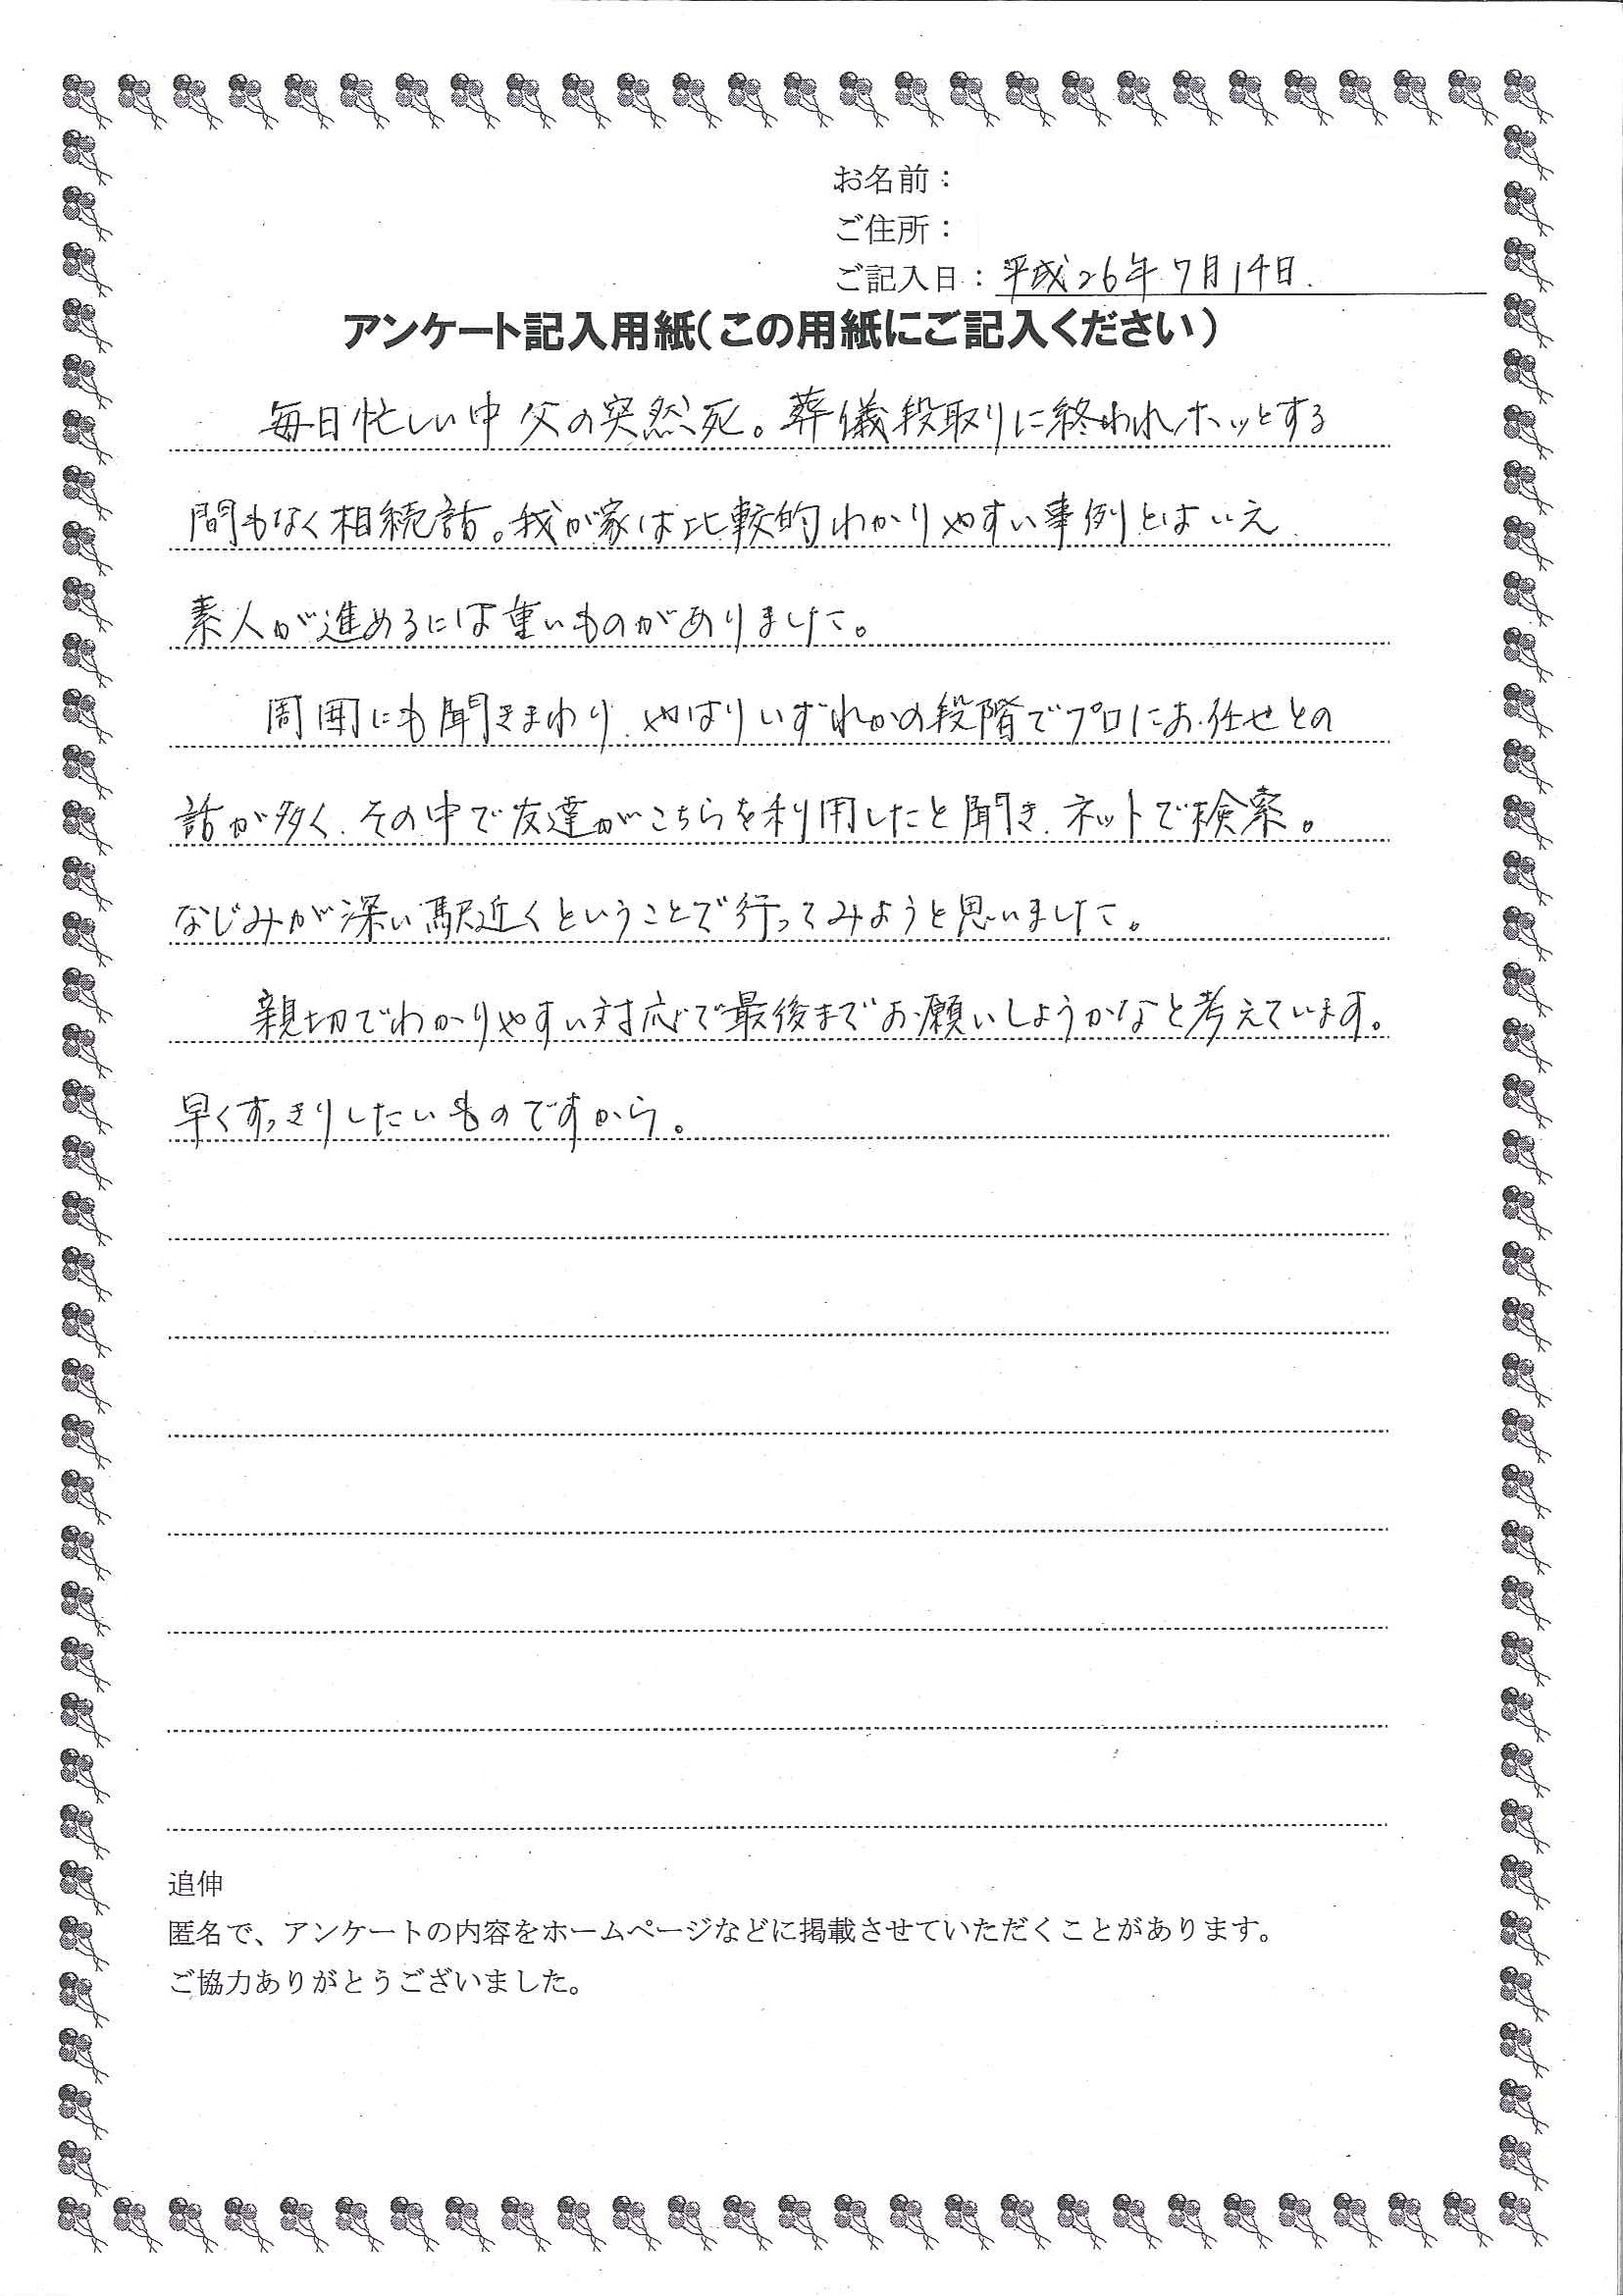 お名前：
ご住所：
ご記入日：平成26年7月14日.
アンケート記入用紙（この用紙にご記入ください）
毎日忙しい中父の突然死。葬儀段取りに終われホッとする
間もなく相続話。我が家は比較的わかりやすい事例とはいえ、
素人が進めるには重いものがありました。
周囲にも聞きまわり、やはりいずれかの段階でプロにお任せとの
話が多く、その中で友達がこちらを利用したと聞き、ネットで検索。
なじみが深い駅近くということで行ってみようと思いました。
親切でわかりやすい対応で最後までお願いしようかなと考えています。
早くすっきりしたいものですから。
追伸
匿名で、アンケートの内容をホームページなどに掲載させていただくことがあります。
ご協力ありがとうございました。